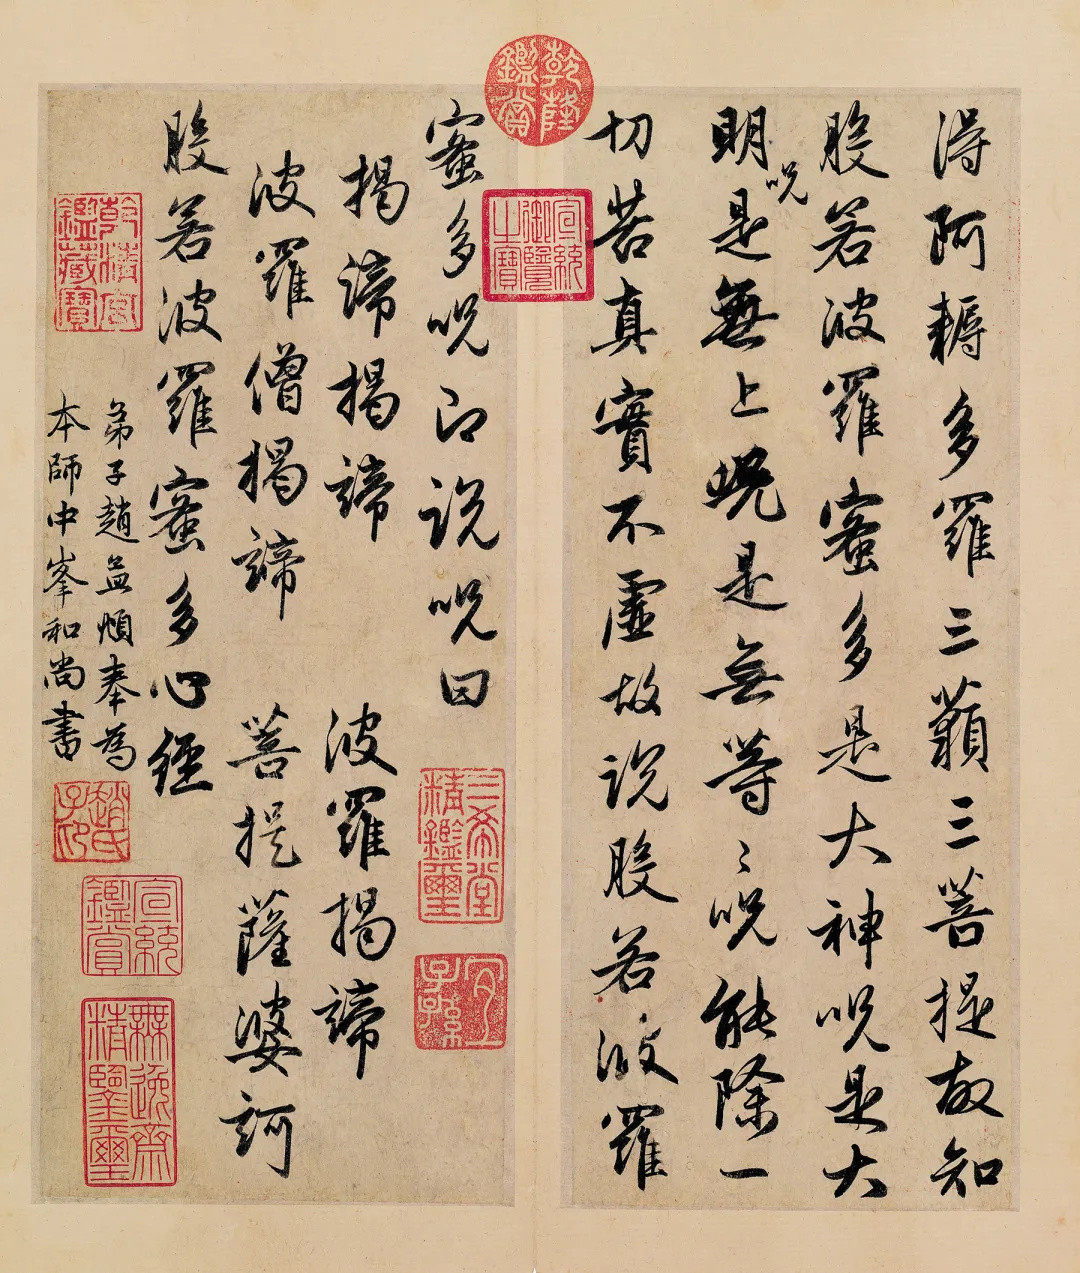 得阿耨多羅三藐三菩提故知
般若波羅蜜多是大神呪是大
明呪是無上呪是無等〻呪能除一
切苦真實不虛故説般若波羅
蜜多呪即説呪曰
揭諦揭諦 波羅揭諦
波羅僧揭諦 菩提薩婆訶
般若波羅蜜多心經
弟子趙孟頫奉為
本師中峯和尚書
乾隆鑑賞
宣統御覽之寶
三希堂精鑑璽
宜子孫
乾清宮鑑藏寶
趙氏子昂
宣統鑑賞
無逸齋精鑒璽